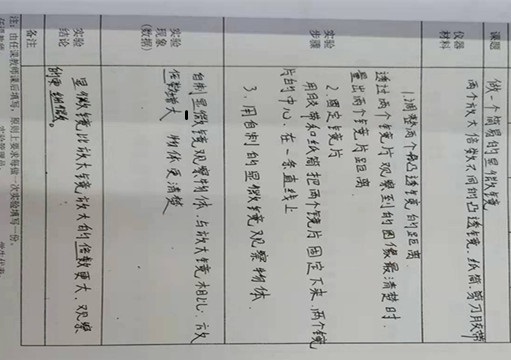 课题
做一个简易的显微镜
仪器
材料
两个放大倍数不同的凸透镜、纸筒、剪刀、胶带
实验
步骤
1.调整两个凸透镜的距离
透过两个镜片观察到的图像最清楚时.
量出两个镜片距离
2.固定镜片
用胶带和纸筒把两个镜片固定下来,两个镜
片的中心,在一条直线上
3.用自制的显微镜观察物体.
实验
现象
(数据)
自制显微镜观察物体,与放大镜相比,放
倍数增大,物体更清楚
实验
结论
显微镜比放大镜放大的倍数更大,观察
的更细微。
备注
注:由任课教师课后填写,原则上要求每做一次实验填写一份。
实验管理员: